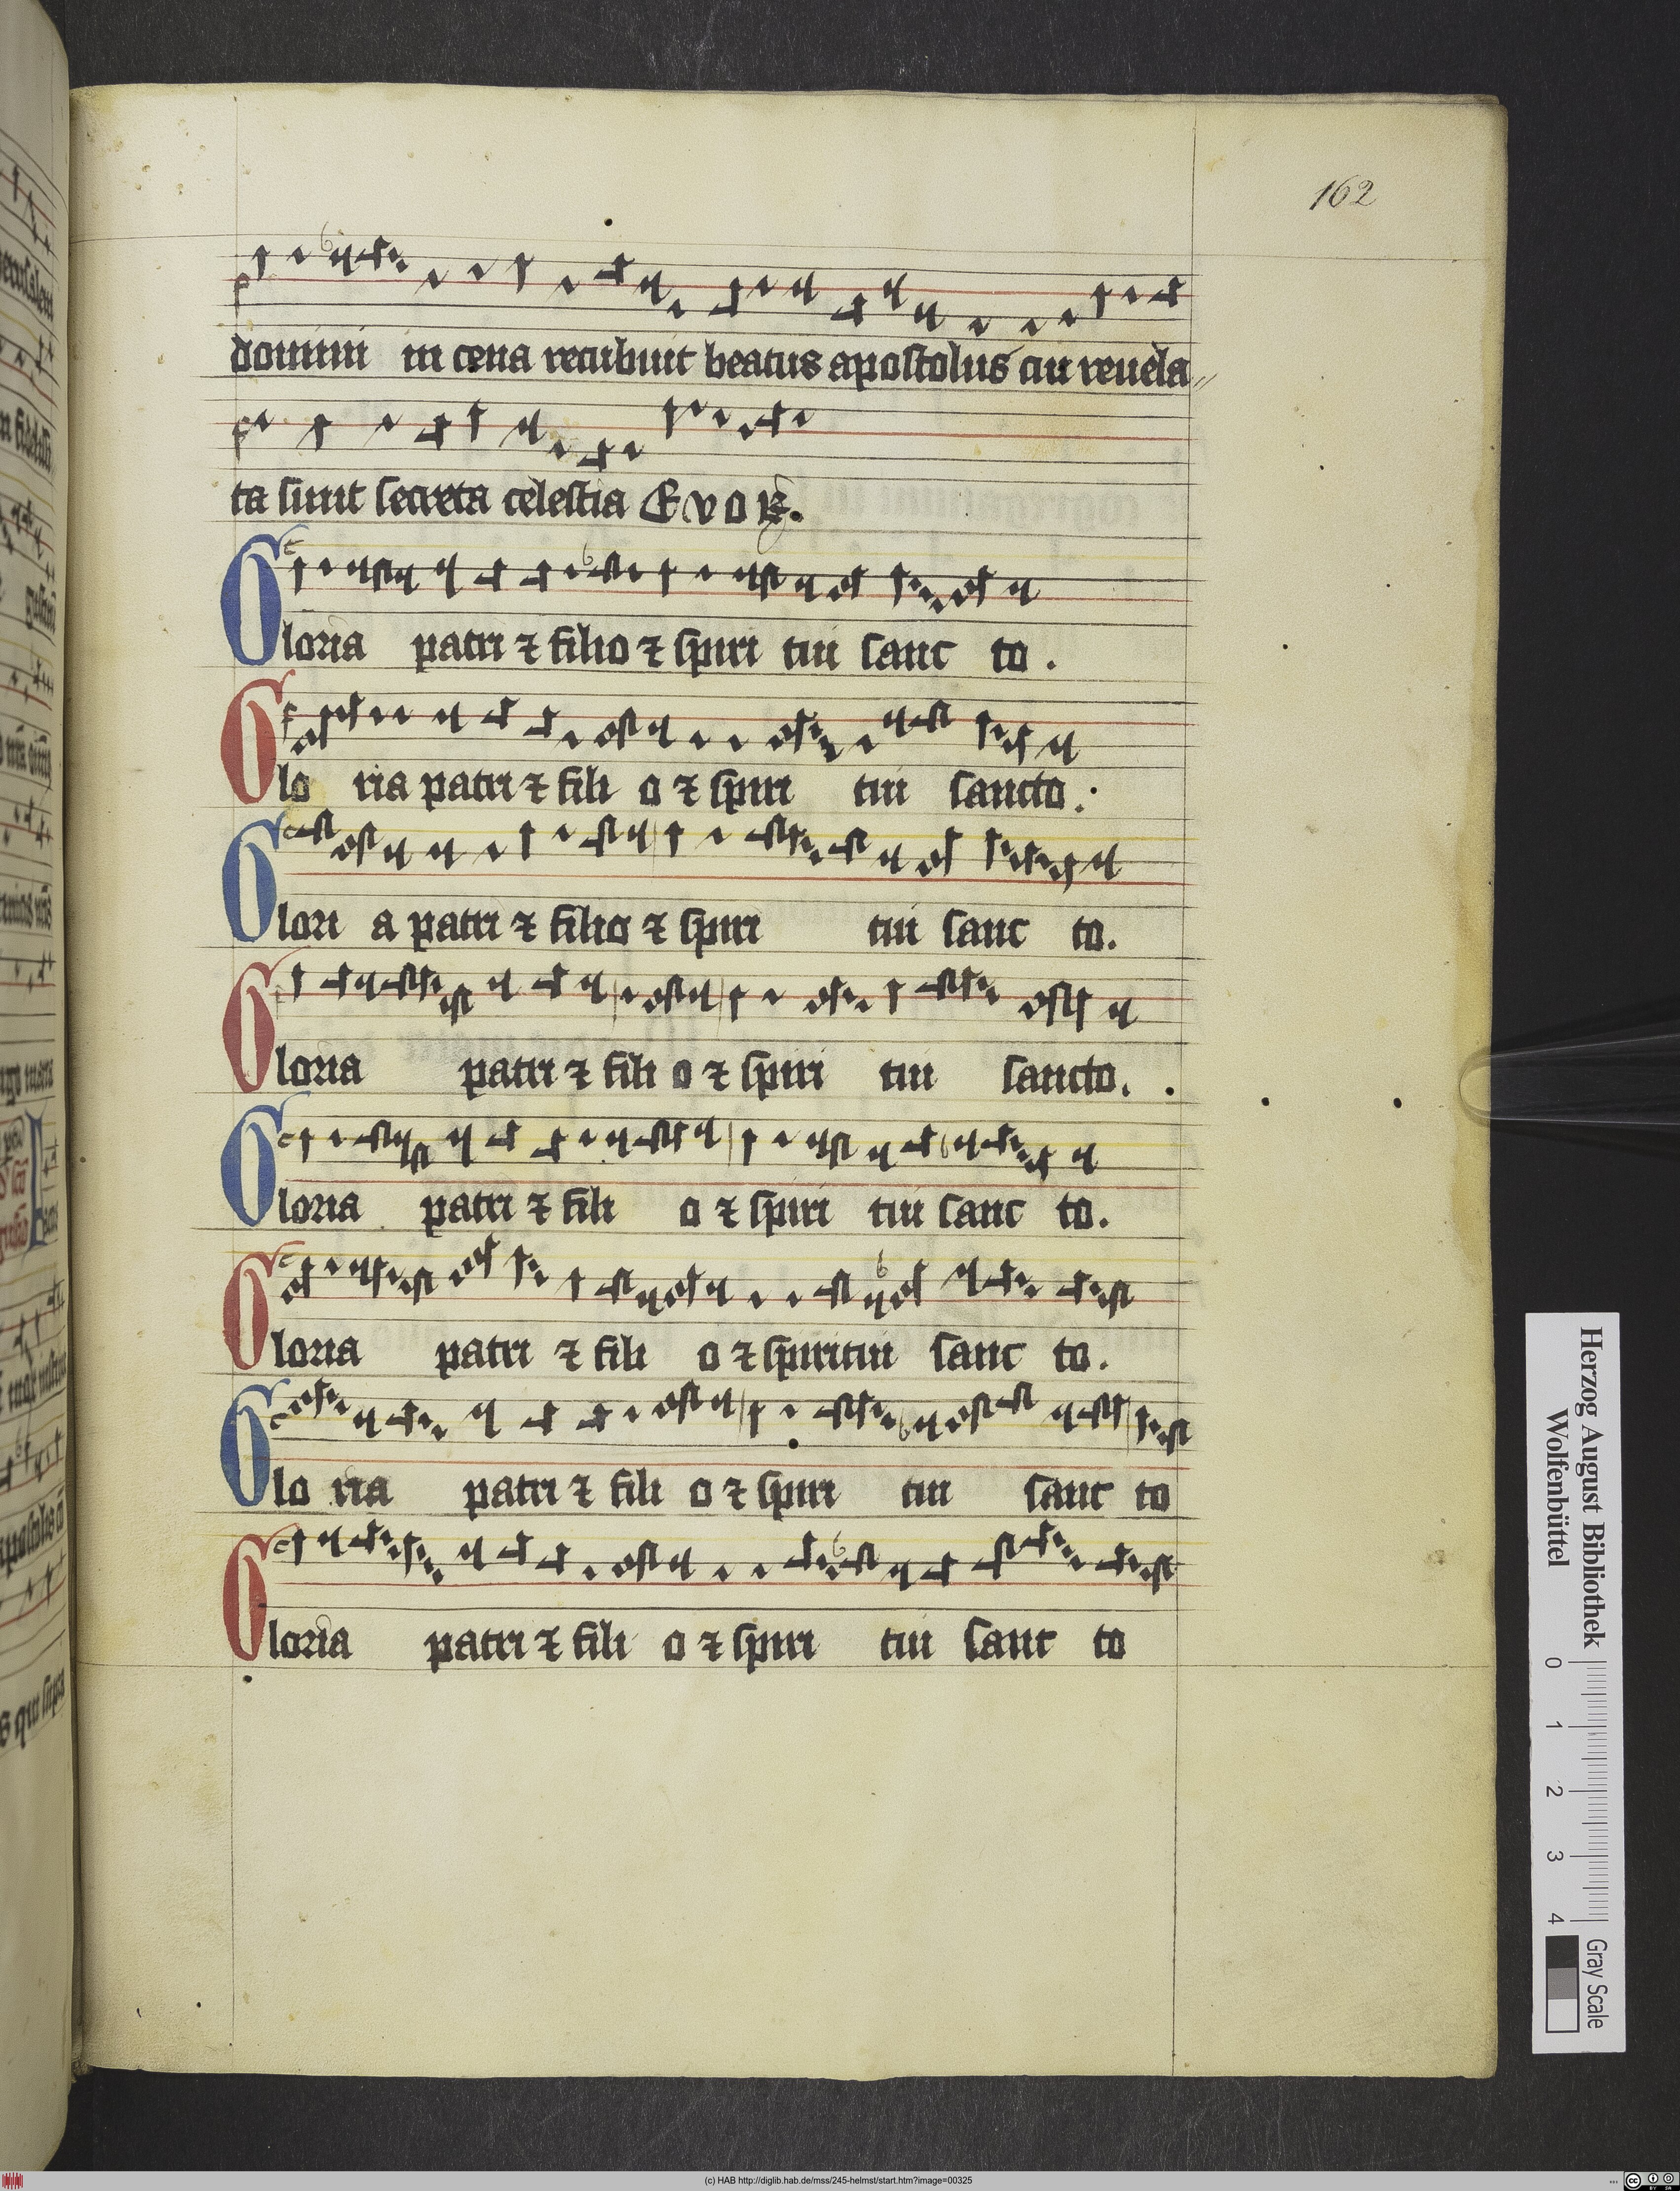 162
domini in cena recubuit beatus apostolus cui reuela//
ta sunt secreta celestia E v o
Gloria patri ⁊ filio ⁊ spiri tui sanc to .
Glo ria patri ⁊ fili o ⁊ spiri tui sancto .
Glori a patri ⁊ filio ⁊ spiri tui sanc to.
Gloria patri ⁊ fili o ⁊ spiri tui sancto.
Gloria patri ⁊ fili o ⁊ spiri tui sanc to.
Gloria patri ⁊ fili o ⁊ spiritui sanc to.
Glo ria patri ⁊ fili o ⁊ spiri tui sanc to
Gloria patri ⁊ fili o ⁊ spiri tui sanc to
Herzog August Bibliothek
Wolfenbüttel
0 1 2 3 4
Gray Scale
(c) HAB http://diglib.hab.de/mss/245-helmst/start.htm?image=00325